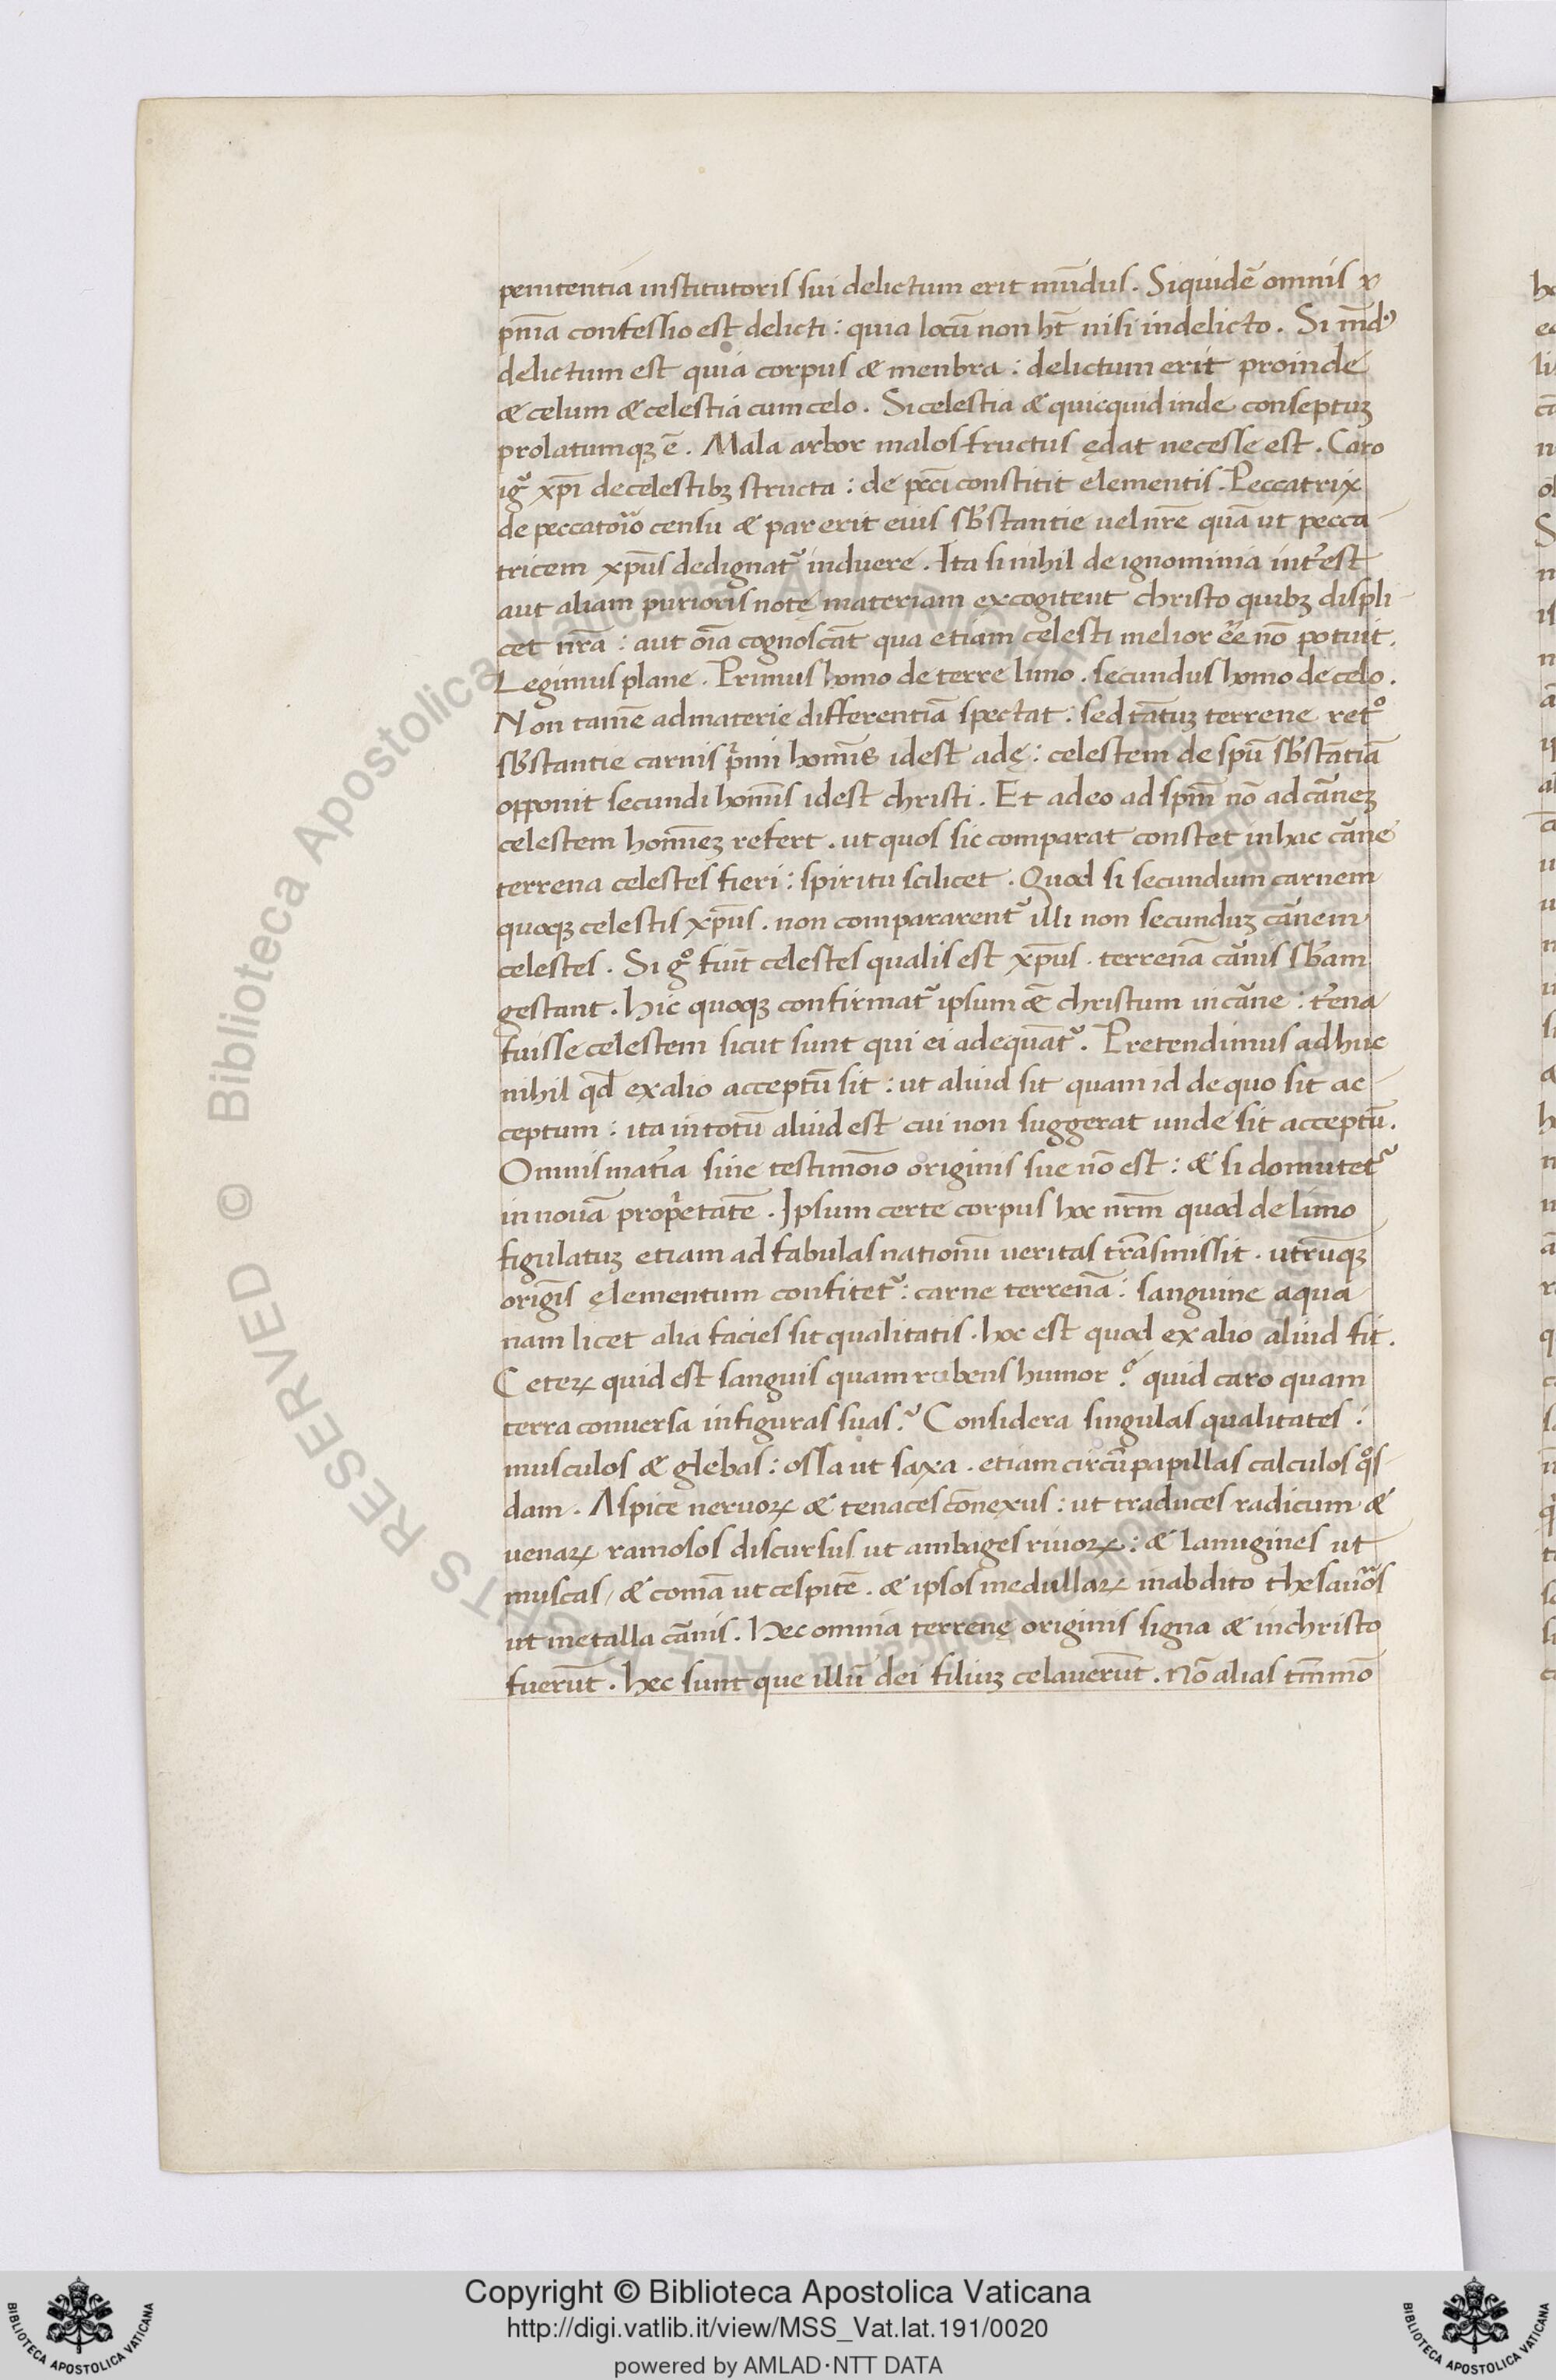 penitentia institutoris sui delictum erit mūdus. Siquidē omnis
pn̄ia confessio est delicti: quia locū non hт̄ nisi in delicto. Si mūdꝰ
delictum est quia corpus & menbra: delictum erit proinde
& celum & celestia cum celo. Si celestia & quicquid inde conseptuꝫ
prolatumqꝫ ē. Mala arbor malos fructus ędat necesse est. Caro
igͥ xp̄i de celestibꝫ structa: de pc̄ci constitit elementis. Peccatrix
de peccatoͬio censu & par erit eius sb̄stantie uel nr̄e quā ut pecca-
tricem xp̄us dedignatᷣ induere. Ita si nihil de ignominia int̓est
aut aliam purioris notę materiam excogitent christo quibꝫ displi-
cet nr̄a: aut oīa cognoscāt qua etiam cęlesti melior eē nō potuit.
Legimus plane. Primus homo de terre limo. secundus homo de celo.
Non tamē ad materie differentiā spectat: sed tātuꝫ terrene retͦ
sb̄stantie carnis pͥmi homīs idest adę: celestem de spū sb̄stātiā
opponit secundi homīs idest christi. Et adeo ad spm̄ nō ad cᷓneꝫ
celestem homīeꝫ refert. ut quos sic comparat constet in hac cᷓne
terrena celestes fieri: spiritu scilicet. Quod si secundum carnem
quoqꝫ celestis xp̄us. non compararentᷣ illi non secunduꝫ cᷓnem
celestes. Si gͦ fiūt celestes qualis est xp̄us. terrenā cᷓnis sb̄am
gestant. hic quoqꝫ confirmatᷣ ipsum & christum in cᷓne: t̓rena
fuisse celestem sicut sunt qui ei adequātᷣ. Pretendimus adhuc
nihil qd̄ ex alio acceptū sit: ut aliud sit quam id de quo sit ac-
ceptum: ita in totū aliud est cui non suggerat unde sit acceptū.
Omnis mat̓ia sine testimōio originis sue nō est: & si domutetᷣ
in nouā propͥetatē. Ipsum certe corpus hoc nr̄m quod de limo
figulatuꝫ etiam ad fabulas nationū ueritas trāsmissit. utrūqꝫ
origīs ęlementum confitetᷣ: carne terrenā: sanguine aqua
nam licet alia facies sit qualitatis. hoc est quod ex alio aliud fit.
Ceteꝝ quid est sanguis quam rubens humor? quid caro quam
terra conuersa in figuras suas? Considera singulas qualitates:
musculos & glebas: ossa ut saxa. etiam circū papillas calculos qͦs-
dam. Aspice neruoꝝ & tenaces cōnexus: ut traduces radicum &
uenaꝝ ramosos discursus ut ambages riuoꝝ: & lanugines ut
muscas / & comā ut cespitē. & ipsos medullaꝝ in abdito thesauᷓos
ut metalla cᷓnis. Hec omnia terrenę originis signa & in christo
fuerūt. hec sunt que illū dei filiuꝫ celauerūt. Nō alias tm̄mō
Copyright © Biblioteca Apostolica Vaticana
http://digi.vatlib.it/view/MSS_Vat.lat.191/0020
powered by AMLAD·NTT DATA